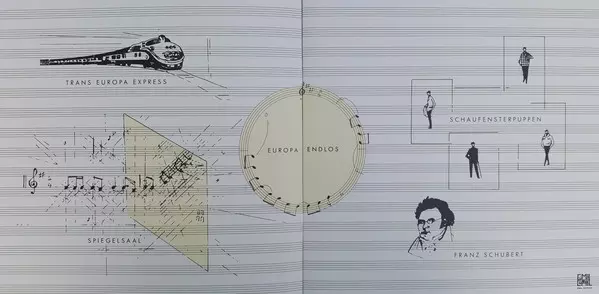 TRANS EUROPA EXPRESS
SPIEGELSAAL
EUROPA ENDLOS
SCHAUFENSTERPUPPEN
FRANZ SCHUBERT